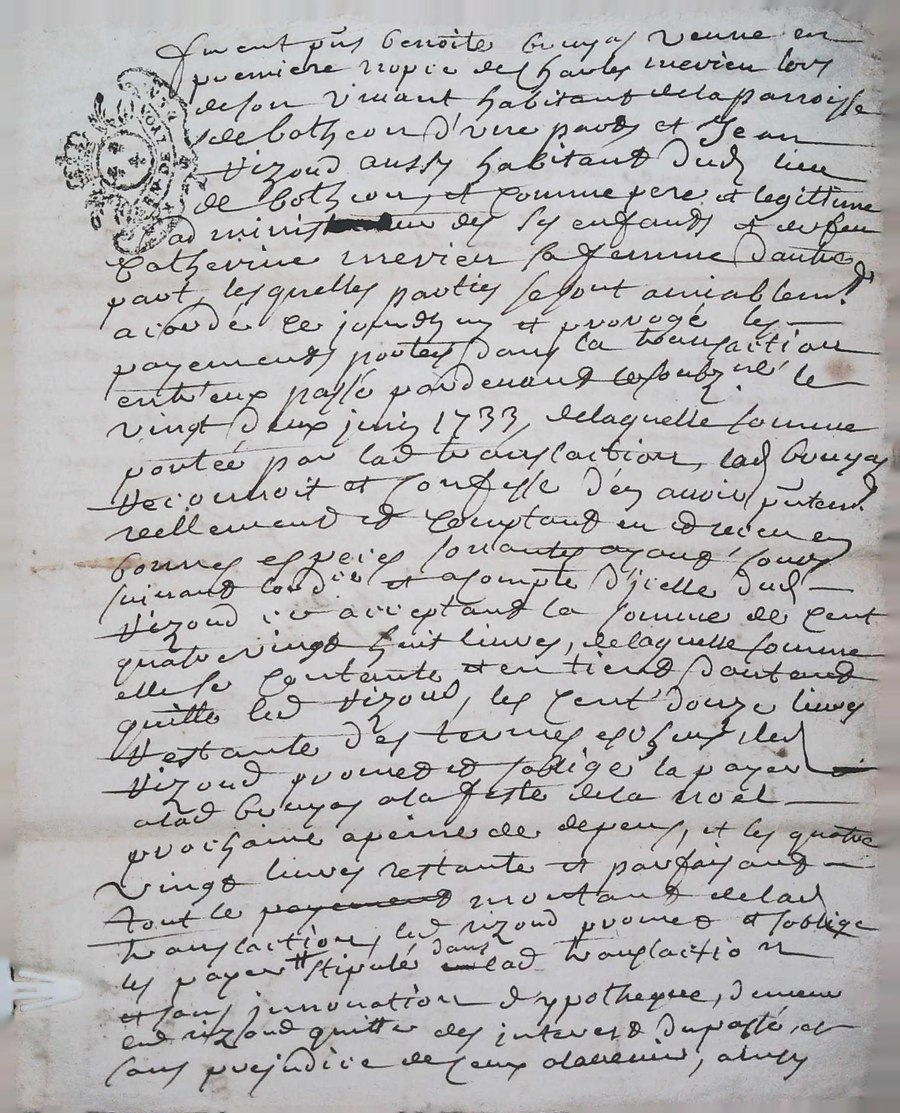 furent pñs benoite bruyas veuve en
premiere nopce de charles merieu lors
de son vivant habitant de la parroisse
de botheon d'une part et Jean
vizoud aussy habitant dud lieu
de botheon, et comme pere et legittime
administ des ses enfants et de feu
Catherine merieu sa femme d'autre
part, lesquelles parties se sont amiablemt
acordé ce jourdhuy et prorogé les
payements portés dans la transaction
entr'eux passé pardevant le soubzné le
vingt deux juin 1733, de laquelle somme
portée par lad transaction, lad bruyas
reconnoit et confesse d'en avoir
reellement et comptant eu et receu en
bonnes especes sonantes ayant cours
suivant lordce et acompte d'icelle dud
vizoud acceptant la somme de cent
quatre vingt huit livres, de laquelle somme
elle se contente et en tient d'autant
quitte led vizoud, les cent douze livres
restante des termes led
vizoud promet et soblige la payer
alad bruyas a la feste de la noel
prochaine apeine de depens, et les quatre
vingt livres restante et parfaisant
tout le payement montant de lad
transaction led vizoud promet et soblige
les payer stipulé dans lad transaction
et sans innovation d'ypotheque, demeure
led vizoud quitte des interest du passé et
sans prejudice de ceux aladvenir, ainsy